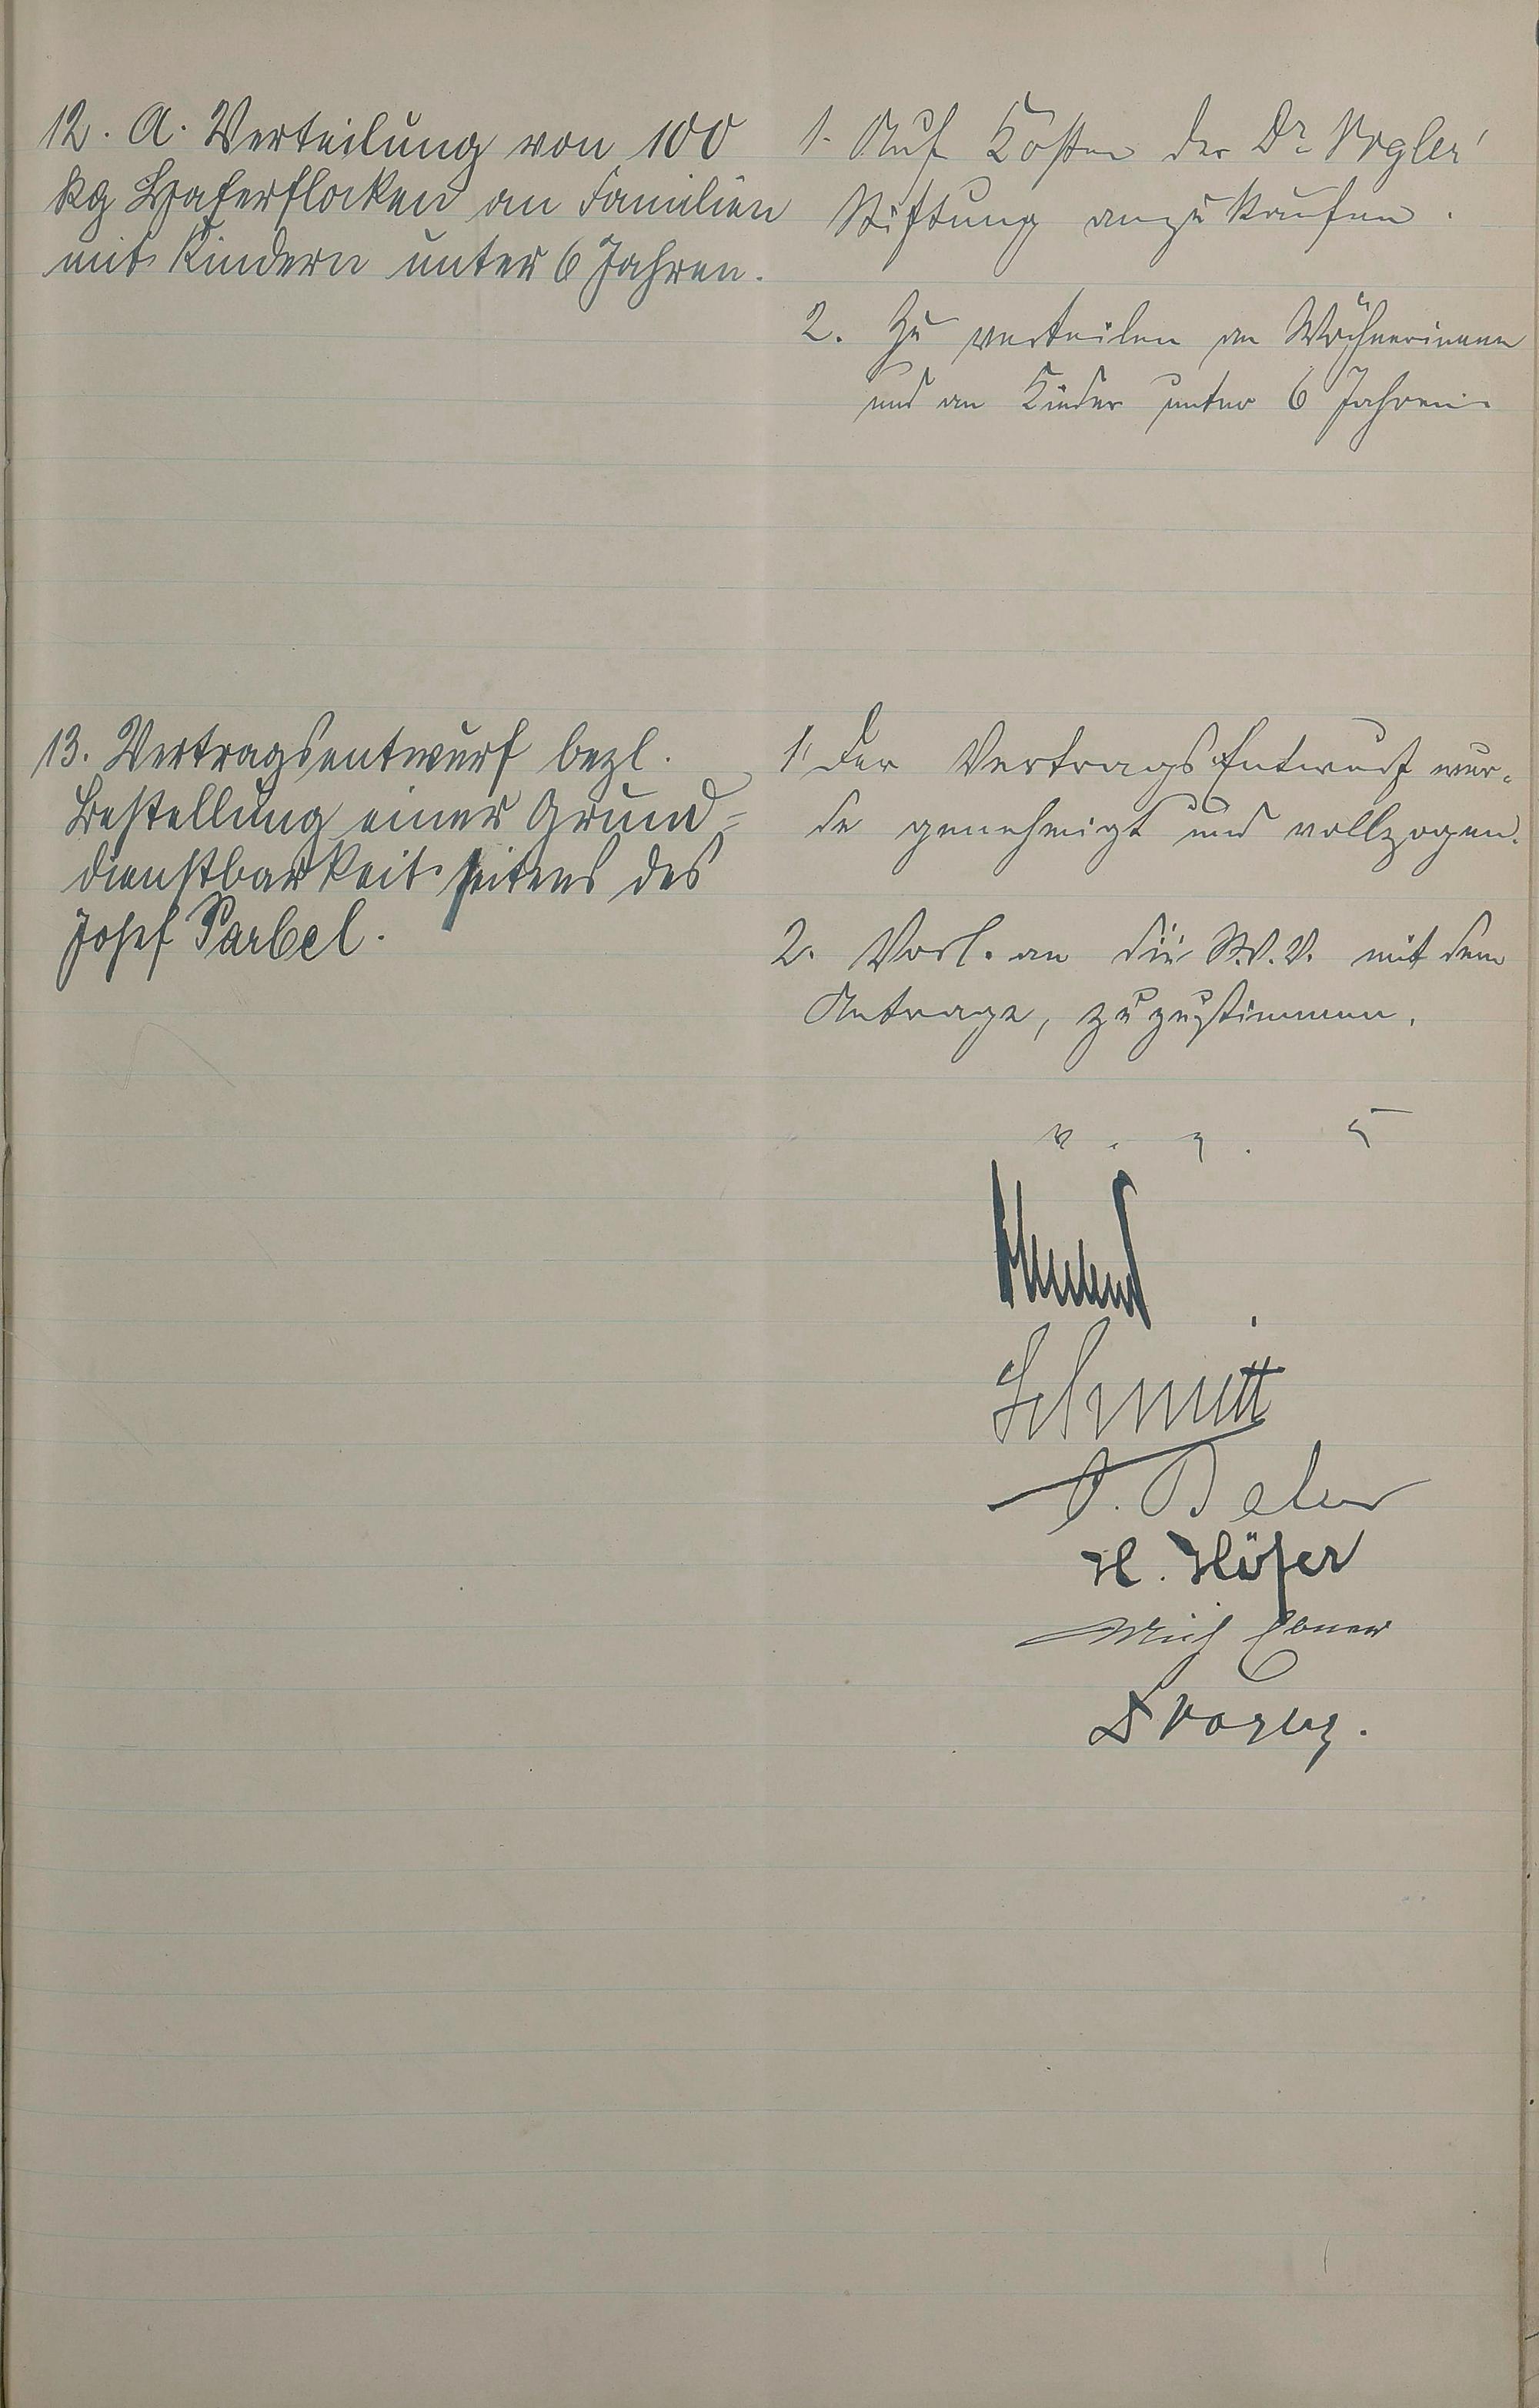 12. A. Verteilung von 100
kg Haferflocken an Familien
mit Kindern unter 6 Jahren.
1. Auf Kosten der Dr Vogler'
Stiftung anzukaufen.
2. Zu verteilen an Wöchnerinnen
und an Kinder unter 6 Jahren.
13. Vertragsentwurf bezl.
Bestellung einer Grund=
dienstbarkeit seitens des
Josef Parbel.
1. Der Vertrags Entwurf wur-
de genehmigt und vollzogen.
2. Vorl. an die St.V.V. mit dem
Antrage, zuzustimmen.
v. g.
Schmitt
H. Höfer